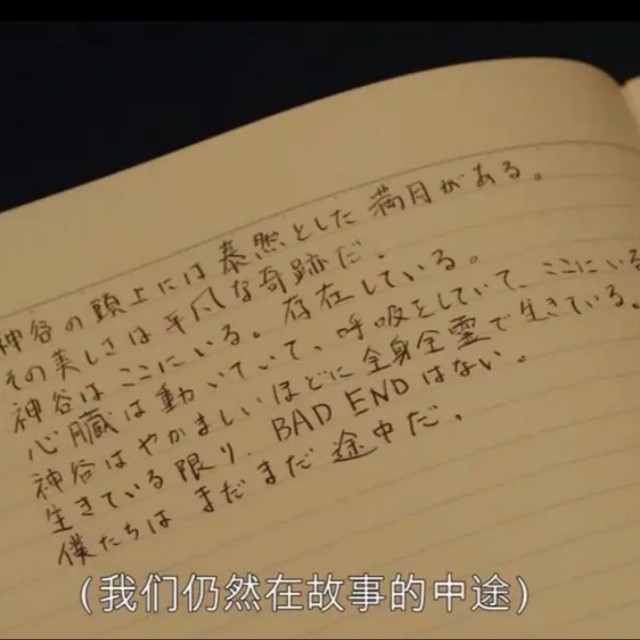 神谷の頭上には泰然とした満月がある。
その美しさは平凡な奇跡だ。
神谷はここにいる。存在している。
心臓は動いていて、呼吸をしていて、ここにいる
神谷はやかましいほどに全身全霊で生きている。
生きている限り、BAD ENDはない。
僕たちはまだまだ途中だ。
(我们仍然在故事的中途)